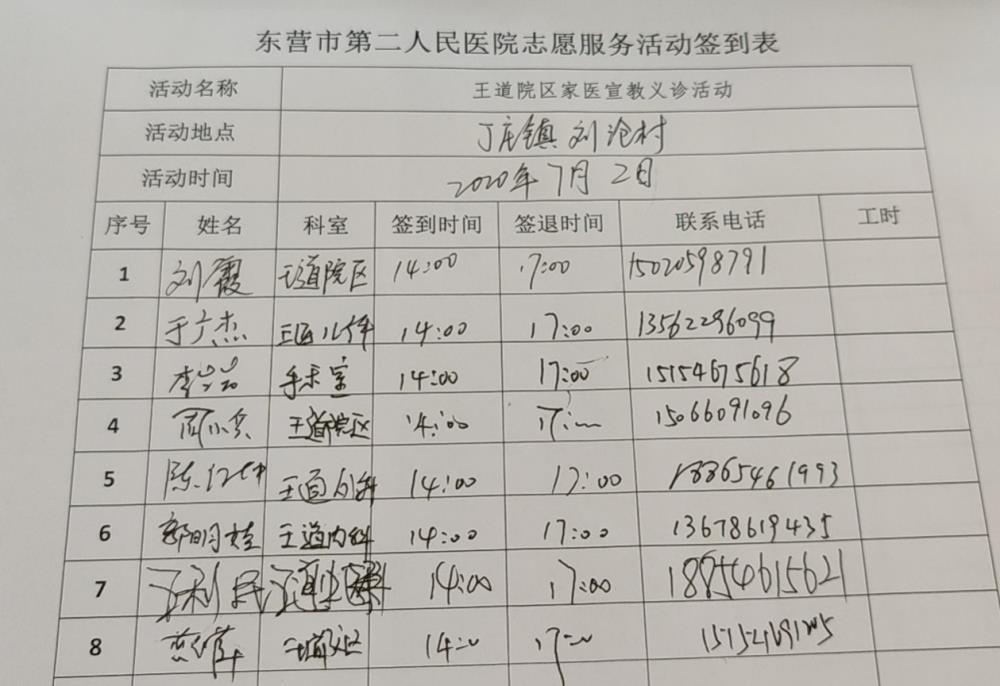 东营市第二人民医院志愿服务活动签到表
活动名称 王道院区家医宣教义诊活动
活动地点 丁庄镇刘沧村
活动时间 2020年7月2日
序号 姓名 科室 签到时间 签退时间 联系电话 工时
1 刘霞 王道院区 14:00 17:00 15020598791
2 于广杰 王道儿科 14:00 17:00 13562296099
3 手术室 14:00 17:00 15154675618
4 王道院区 14:00 17: 15066091096
5 陈 王道外科 14:00 17:00 18865461993
6 王道内科 14:00 17:00 13678619435
7 王利民 14:00 17:00 18854615621
8 14: 17: